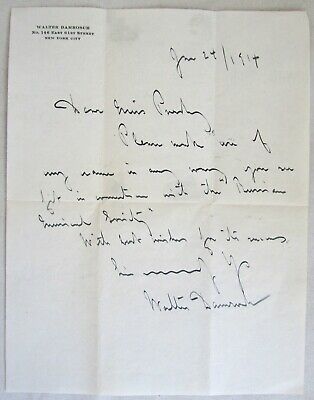 WALTER DAMROSCH
No. 146 EAST 61ST STREET
NEW YORK CITY
Jan 24/1914
Dear Miss
Please make use of
my name in any way you see
fit in connection with the "Russian
Musical Society"
With best wishes for its success
Sincerely Yrs
Walter Damrosch